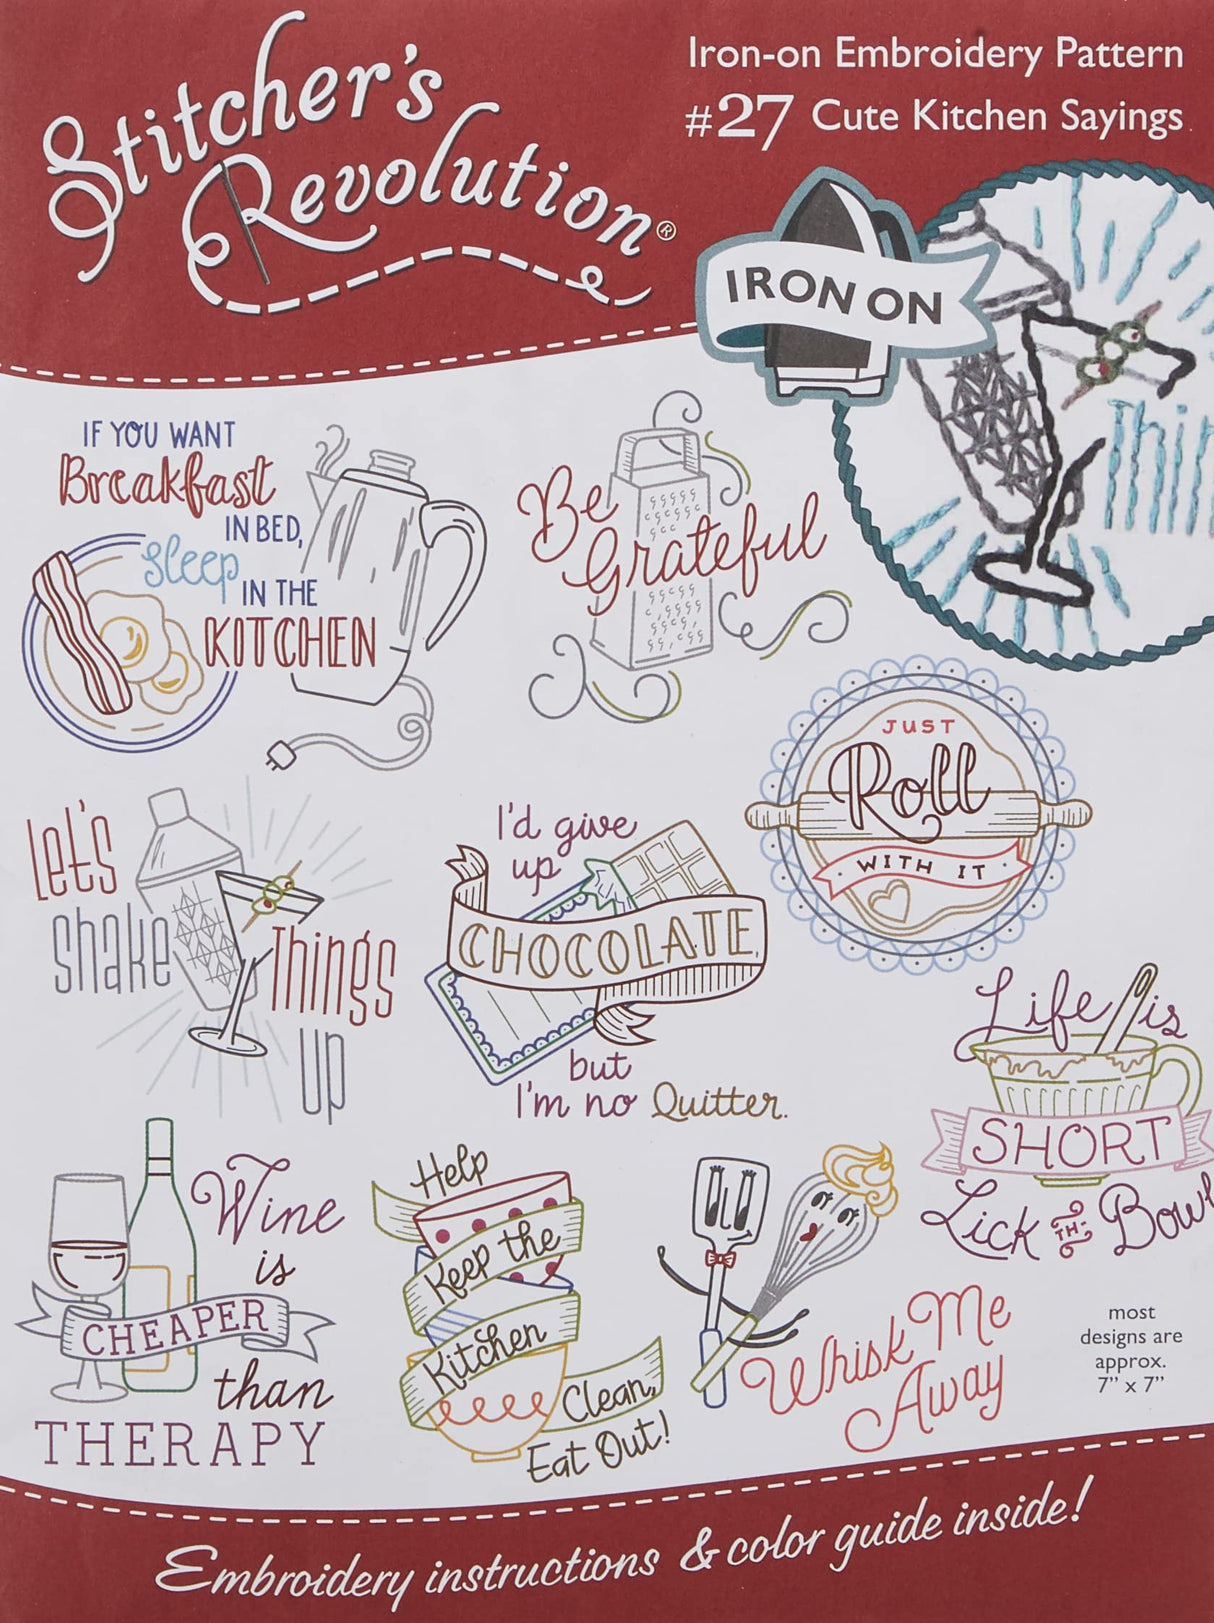 Stitcher's
Revolution®
Iron-on Embroidery Pattern
#27 Cute Kitchen Sayings
IRON ON
IF YOU WANT
Breakfast
IN BED,
sleep
IN THE
KITCHEN
Be
Grateful
JUST
Roll
WITH IT
Let's
shake
Things
up
I'd give
up
CHOCOLATE,
but
I'm no Quitter.
Life is
SHORT
Lick THE Bowl
Wine
is
CHEAPER
than
THERAPY
Help
Keep the
Kitchen
Clean,
Eat Out!
Whisk Me
Away
most
designs are
approx.
7” x 7”
Embroidery instructions & color guide inside!